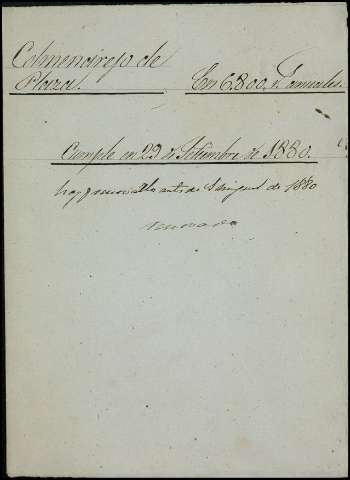 Colmenarejo de
Plaza.
En 6.800 r.s anuales.
Cumple en 29 de Setiembre de 1880.
hay q renovarlo antes de S Miguel de 1880
renovado